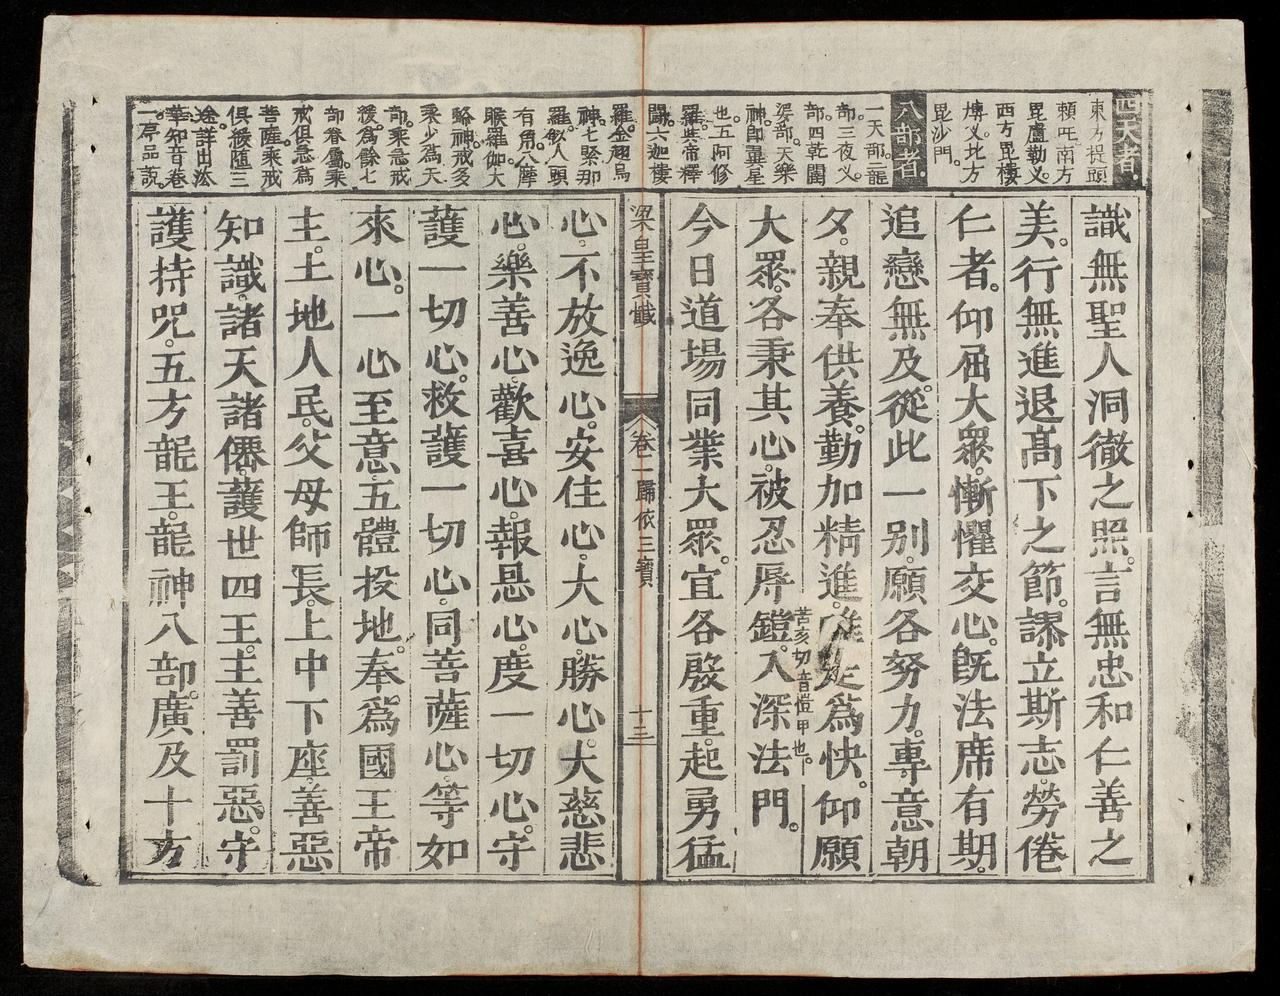 四天者。
東方提頭
頼吒南方
毘盧勒叉。
西方毘樓
博叉北方
毘沙門。
八部者。
一天部二龍
部。三夜叉。
部四乾闥
婆部。天樂
神。即翼星
也。五阿修
羅。此帝釋
鬪。六迦樓
羅。金翅鳥
神。七緊那
羅。似人頭
有角。八摩
睺羅伽大
蟒神。戒多
乘少為天
部。乘急戒
緩。為餘七
部眷屬。乘
戒俱急為
菩薩乘戒
俱緩随三
途。詳出法
華知音卷
一序品說。
識無聖人洞徹之照。言無忠和仁善之
美。行無進退高下之節。謬立斯志。勞倦
仁者。仰屈大眾。慚懼交心。既法席有期。
追戀無及。從此一別。願各努力。專意朝
夕。親奉供養。勤加精進。為快。仰願
大眾。各秉其心。被忍辱鎧。入深法門。
苦亥切音愷甲也。
今日道場同業大眾。宜各啟重。起勇猛
梁皇寶懺 卷一歸依三寶 十三
心。不放逸心。安住心。大心。勝心。大慈悲
心。樂善心。歡喜心。報恩心。度一切心。守
護一切心。救護一切心。同菩薩心。等如
來心。一心至意。五體投地。奉為國王帝
主。土地人民。父母師長。上中下座。善惡
知識。諸天諸僊。護世四王。主善罰惡。守
護持咒。五方龍王。龍神八部。廣及十方